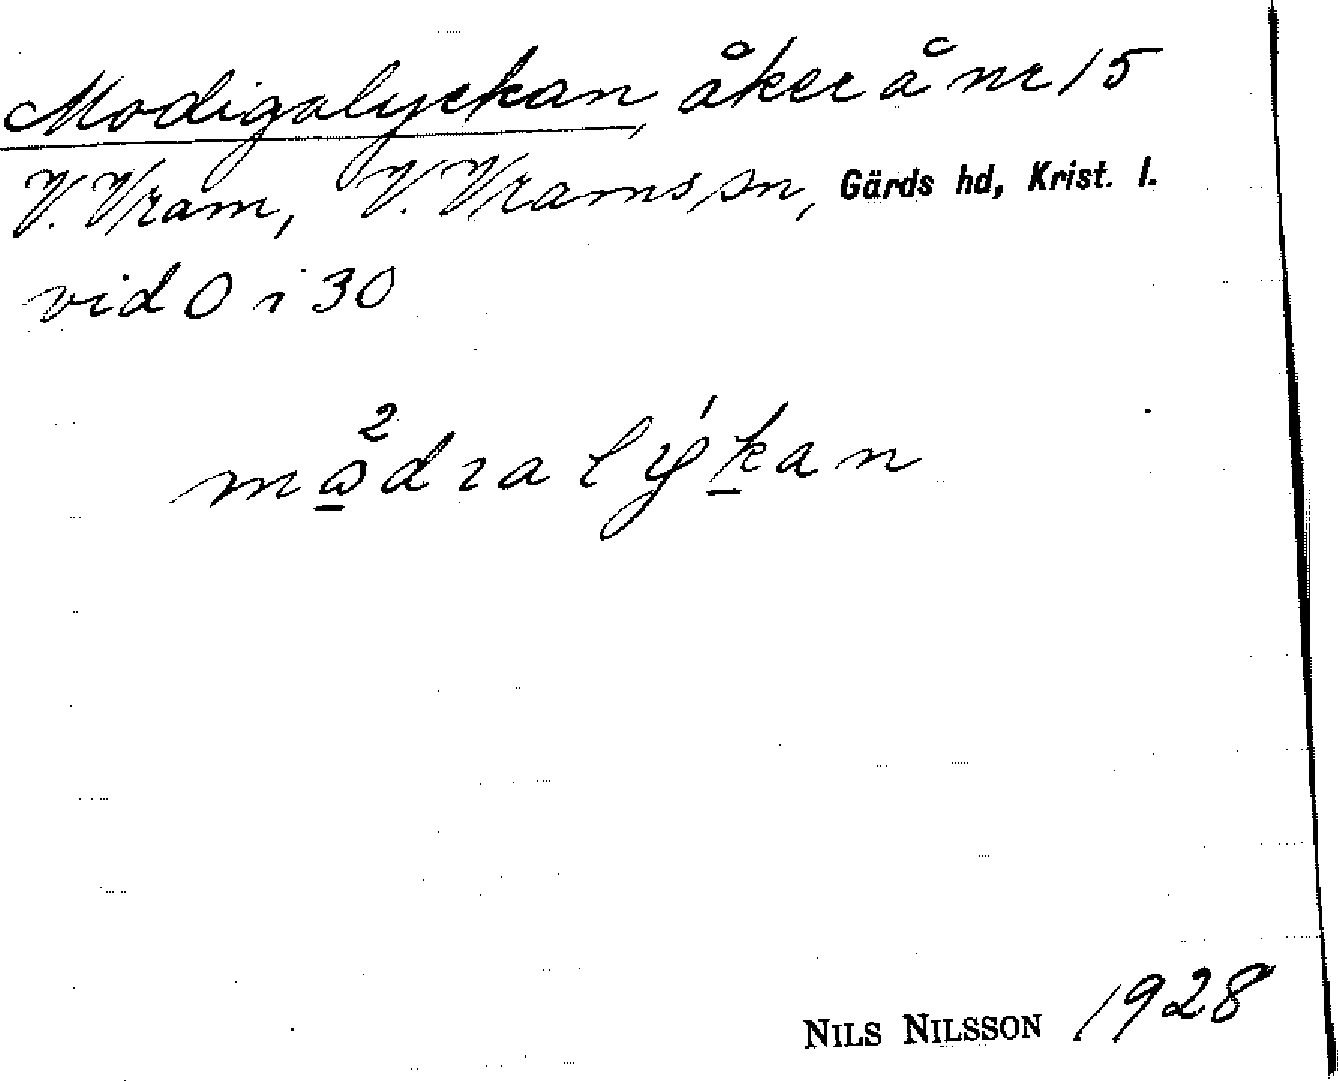 Modigalyckan, åker å nr 15
V. Vram, V. Vrams sn, Gärds hd, Krist. l.
vid 0 i 30
mω̱²dralýḵan
NILS NILSSON 1928